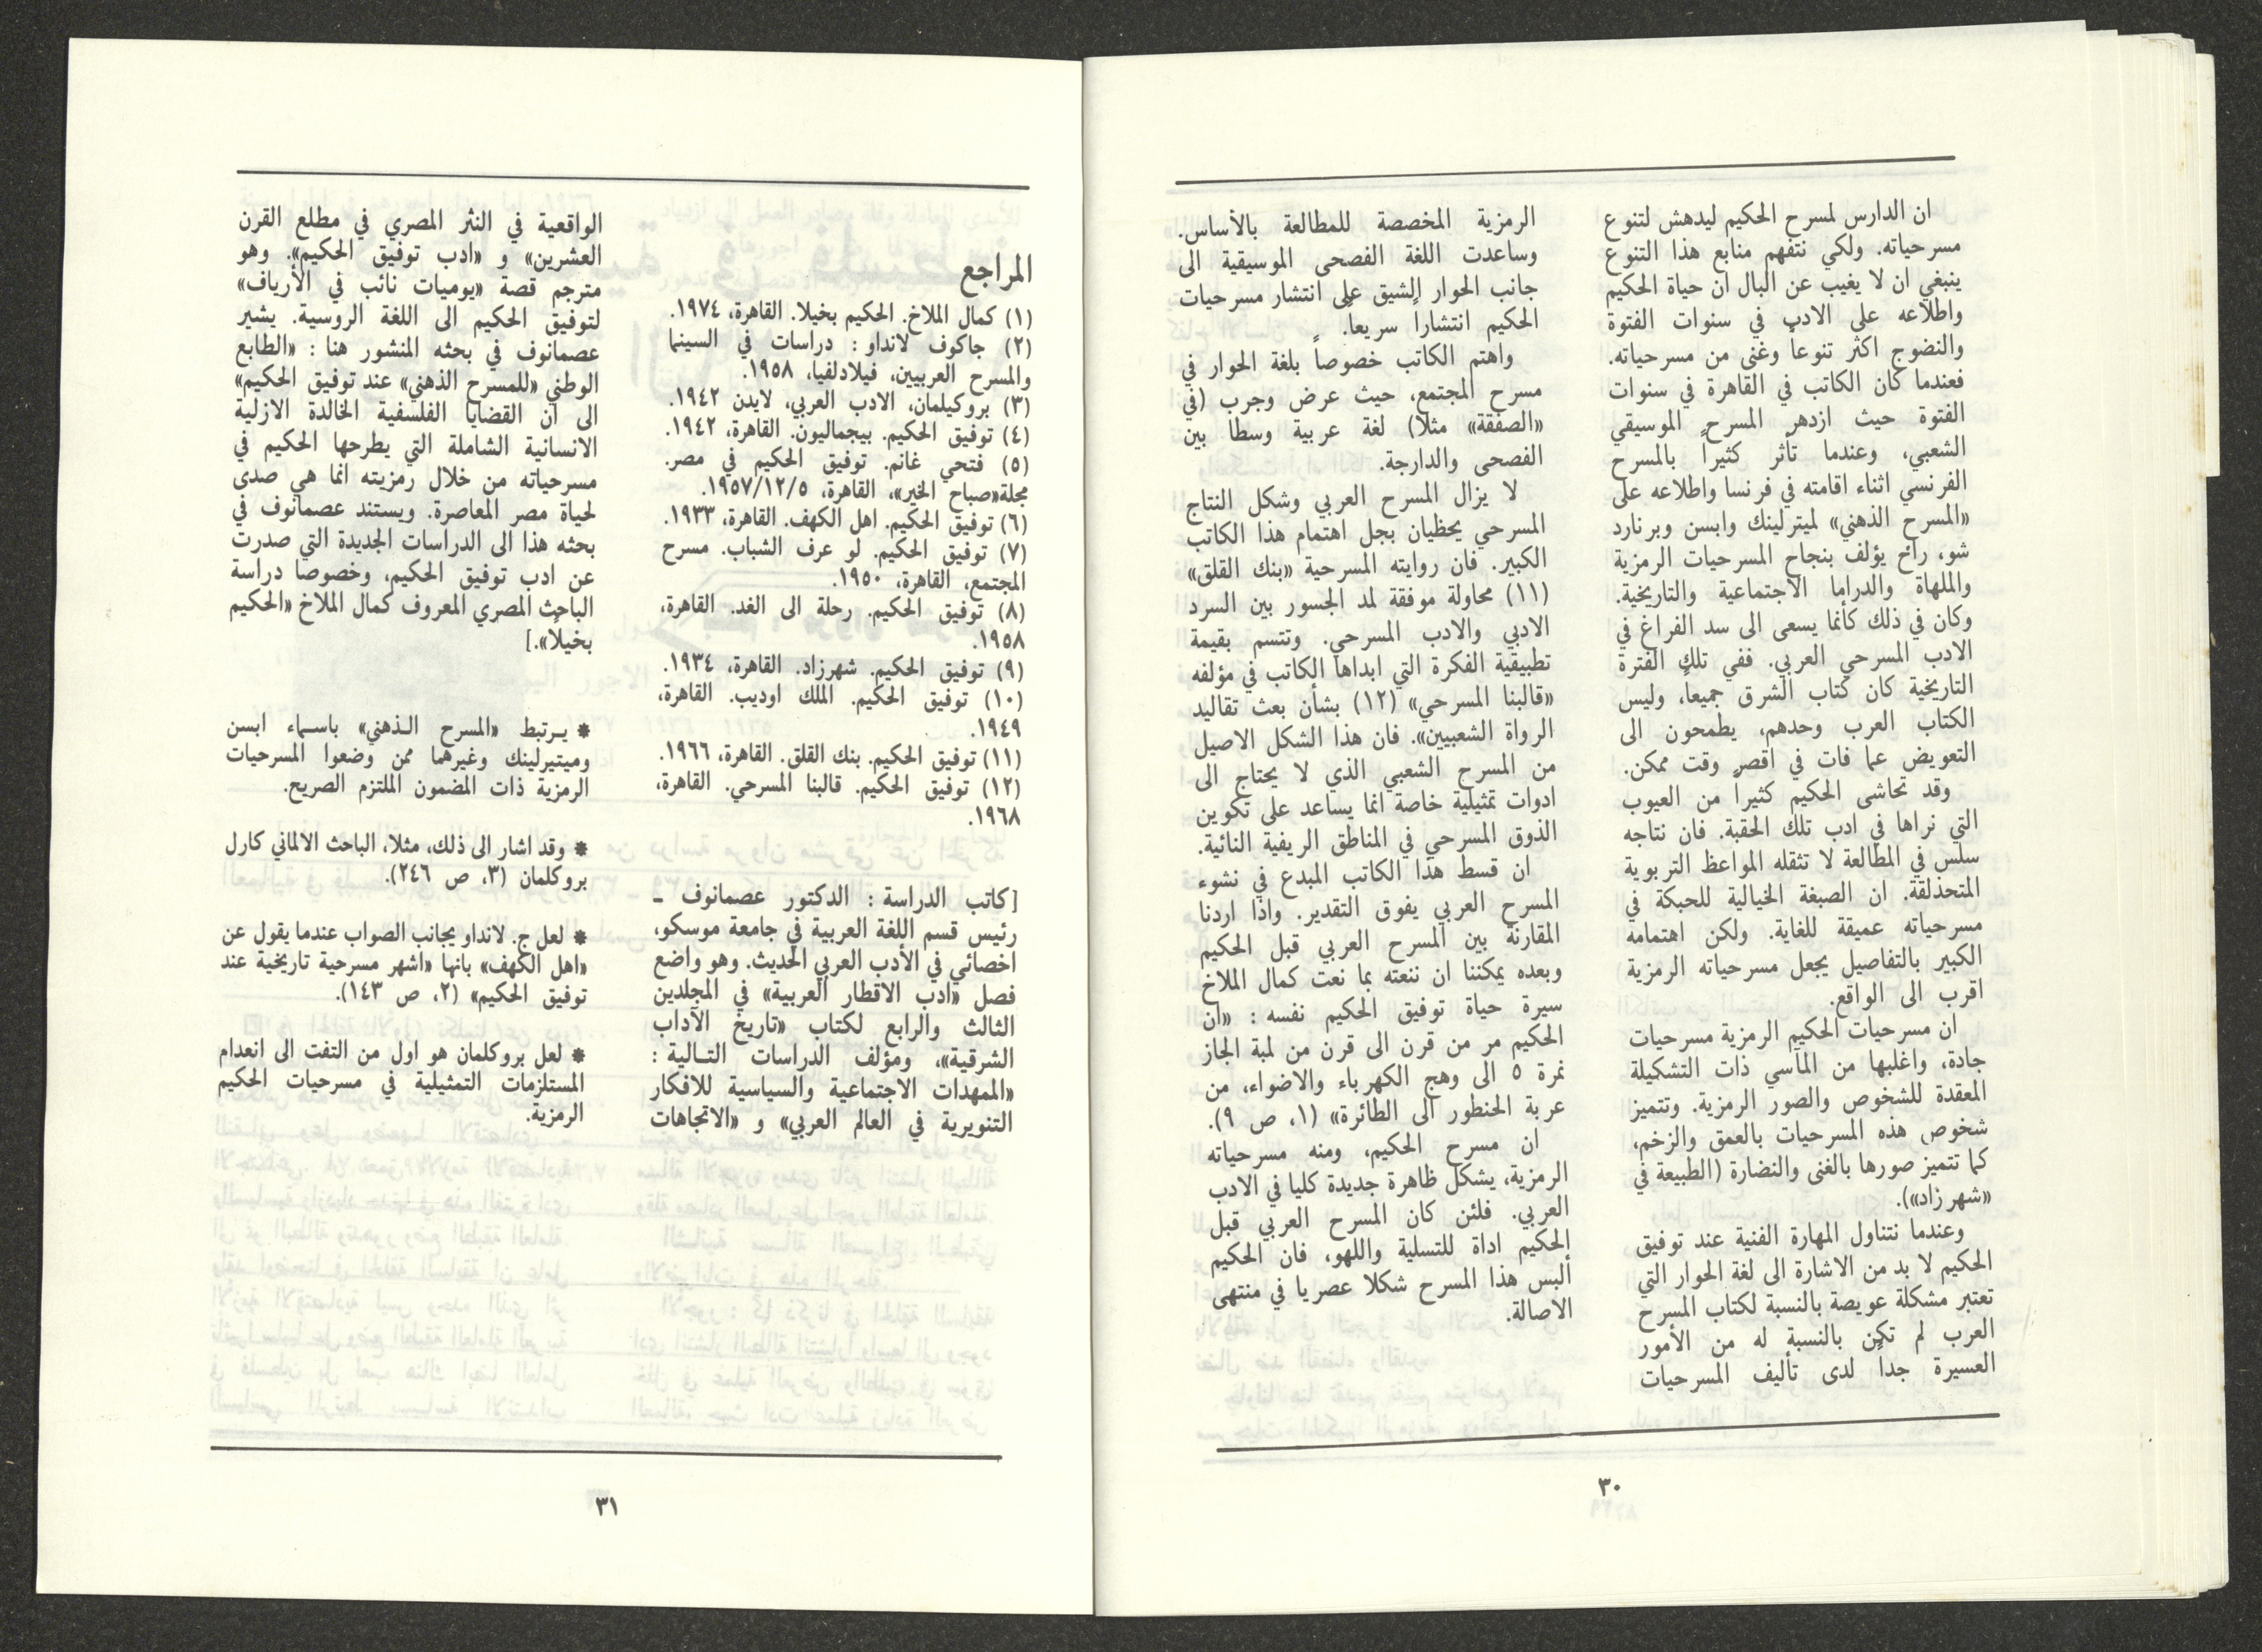 ان الدارس لمسرح الحكيم ليدهش لتنوع
مسرحياته. ولكي نتفهم منابع هذا التنوع
ينبغي ان لا يغيب عن البال ان حياة الحكيم
واطلاعه على الادب في سنوات الفتوة
والنضوج اكثر تنوعاً وغنى من مسرحياته.
فعندما كان الكاتب في القاهرة في سنوات
الفتوة حيث ازدهر المسرح الموسيقي
الشعبي، وعندما تأثر كثيراً بالمسرح
الفرنسي اثناء اقامته في فرنسا واطلاعه على
«المسرح الذهني» لميترلينك وابسن وبرنارد
شو، راح يؤلف بنجاح المسرحيات الرمزية
والملهاة والدراما الاجتماعية والتاريخية.
وكان في ذلك كأنما يسعى الى سد الفراغ في
الادب المسرحي العربي. ففي تلك الفترة
التاريخية كان كتاب الشرق جميعاً، وليس
الكتاب العرب وحدهم، يطمحون الى
التعويض عما فات في اقصر وقت ممكن.
وقد تحاشى الحكيم كثيراً من العيوب
التي نراها في ادب تلك الحقبة. فان نتاجه
سلس في المطالعة لا تثقله المواعظ التربوية
المتحذلقة. ان الصبغة الخيالية للحبكة في
مسرحياته عميقة للغاية. ولكن اهتمامه
الكبير بالتفاصيل يجعل مسرحياته الرمزية
اقرب الى الواقع.
ان مسرحيات الحكيم الرمزية مسرحيات
جادة، واغلبها من المآسي ذات التشكيلة
المعقدة للشخوص والصور الرمزية. وتتميز
شخوص هذه المسرحيات بالعمق والزخم،
كما تتميز صورها بالغنى والنضارة (الطبيعة في
«شهرزاد»).
وعندما نتناول المهارة الفنية عند توفيق
الحكيم لا بد من الاشارة الى لغة الحوار التي
تعتبر مشكلة عويصة بالنسبة لكتاب المسرح
العرب لم تكن بالنسبة له من الأمور
العسيرة جداً لدى تأليف المسرحيات
الرمزية المخصصة للمطالعة بالأساس.
وساعدت اللغة الفصحى الموسيقية الى
جانب الحوار الشيق على انتشار مسرحيات
الحكيم انتشاراً سريعاً.
واهتم الكاتب خصوصاً بلغة الحوار في
مسرح المجتمع، حيث عرض وجرب (في
«الصفقة» مثلا) لغة عربية وسطا بين
الفصحى والدارجة.
لا يزال المسرح العربي وشكل النتاج
المسرحي يحظيان بجل اهتمام هذا الكاتب
الكبير. فان روايته المسرحية «بنك القلق»
(١١) محاولة موفقة لمد الجسور بين السرد
الادبي والادب المسرحي. وتتسم بقيمة
تطبيقية الفكرة التي ابداها الكاتب في مؤلفه
«قالبنا المسرحي» (١٢) بشأن بعث تقاليد
الرواة الشعبيين». فان هذا الشكل الاصيل
من المسرح الشعبي الذي لا يحتاج الى
ادوات تمثيلية خاصة انما يساعد على تكوين
الذوق المسرحي في المناطق الريفية النائية.
ان قسط هذا الكاتب المبدع في نشوء
المسرح العربي يفوق التقدير. واذا اردنا
المقارنة بين المسرح العربي قبل الحكيم
وبعده يمكننا ان ننعته بما نعت كمال الملاخ
سيرة حياة توفيق الحكيم نفسه : «ان
الحكيم مر من قرن الى قرن من لمبة الجاز
نمرة ٥ الى وهج الكهرباء والاضواء، من
عربة الحنطور الى الطائرة» (١، ص ٩).
ان مسرح الحكيم، ومنه مسرحياته
الرمزية، يشكل ظاهرة جديدة كليا في الادب
العربي. فلئن كان المسرح العربي قبل
الحكيم اداة للتسلية واللهو، فان الحكيم
ألبس هذا المسرح شكلا عصريا في منتهى
الاصالة.
٣٠
المراجع
(١) كمال الملاخ. الحكيم بخيلا. القاهرة، ١٩٧٤.
(٢) جاكوف لانداو : دراسات في السينما
والمسرح العربيين، فيلادلفيا، ١٩٥٨.
(٣) بروكيلمان، الادب العربي، لايدن ١٩٤٢.
(٤) توفيق الحكيم. بيجماليون. القاهرة، ١٩٤٢.
(٥) فتحي غانم. توفيق الحكيم في مصر.
مجلة«صباح الخير»، القاهرة، ١٩٥٧/١٢/٥.
(٦) توفيق الحكيم. اهل الكهف. القاهرة، ١٩٣٣.
(٧) توفيق الحكيم. لو عرف الشباب. مسرح
المجتمع، القاهرة، ١٩٥٠.
(٨) توفيق الحكيم. رحلة الى الغد. القاهرة،
١٩٥٨.
(٩) توفيق الحكيم. شهرزاد. القاهرة، ١٩٣٤.
(١٠) توفيق الحكيم. الملك اوديب. القاهرة،
١٩٤٩.
(١١) توفيق الحكيم. بنك القلق. القاهرة، ١٩٦٦.
(١٢) توفيق الحكيم. قالبنا المسرحي. القاهرة،
١٩٦٨.
[كاتب الدراسة : الدكتور عصمانوف ـ
رئيس قسم اللغة العربية في جامعة موسكو،
اخصائي في الأدب العربي الحديث. وهو واضع
فصل «ادب الاقطار العربية» في المجلدين
الثالث والرابع لكتاب «تاريخ الآداب
الشرقية»، ومؤلف الدراسات التـالية :
«الممهدات الاجتماعية والسياسية للافكار
التنويرية في العالم العربي» و «الاتجاهات
الواقعية في النثر المصري في مطلع القرن
العشرين» و «ادب توفيق الحكيم». وهو
مترجم قصة «يوميات نائب في الأرياف»
لتوفيق الحكيم الى اللغة الروسية. يشير
عصمانوف في بحثه المنشور هنا : «الطابع
الوطني «للمسرح الذهني» عند توفيق الحكيم»
الى ان القضايا الفلسفية الخالدة الازلية
الانسانية الشاملة التي يطرحها الحكيم في
مسرحياته من خلال رمزيته انما هي صدى
لحياة مصر المعاصرة. ويستند عصمانوف في
بحثه هذا الى الدراسات الجديدة التي صدرت
عن ادب توفيق الحكيم، وخصوصا دراسة
الباحث المصري المعروف كمال الملاخ «الحكيم
بخيلاً».]
* يـرتبط «المسرح الـذهني» باسـماء ابسن
وميتيرلينك وغيرهما ممن وضعوا المسرحيات
الرمزية ذات المضمون الملتزم الصريح.
* وقد اشار الى ذلك، مثلا، الباحث الالماني كارل
بروكلمان (٣، ص ٢٤٦).
* لعل ج. لانداو يجانب الصواب عندما يقول عن
«اهل الكهف» بانها «اشهر مسرحية تاريخية عند
توفيق الحكيم» (٢، ص ١٤٣).
* لعل بروكلمان هو اول من التفت الى انعدام
المستلزمات التمثيلية في مسرحيات الحكيم
الرمزية.
٣١